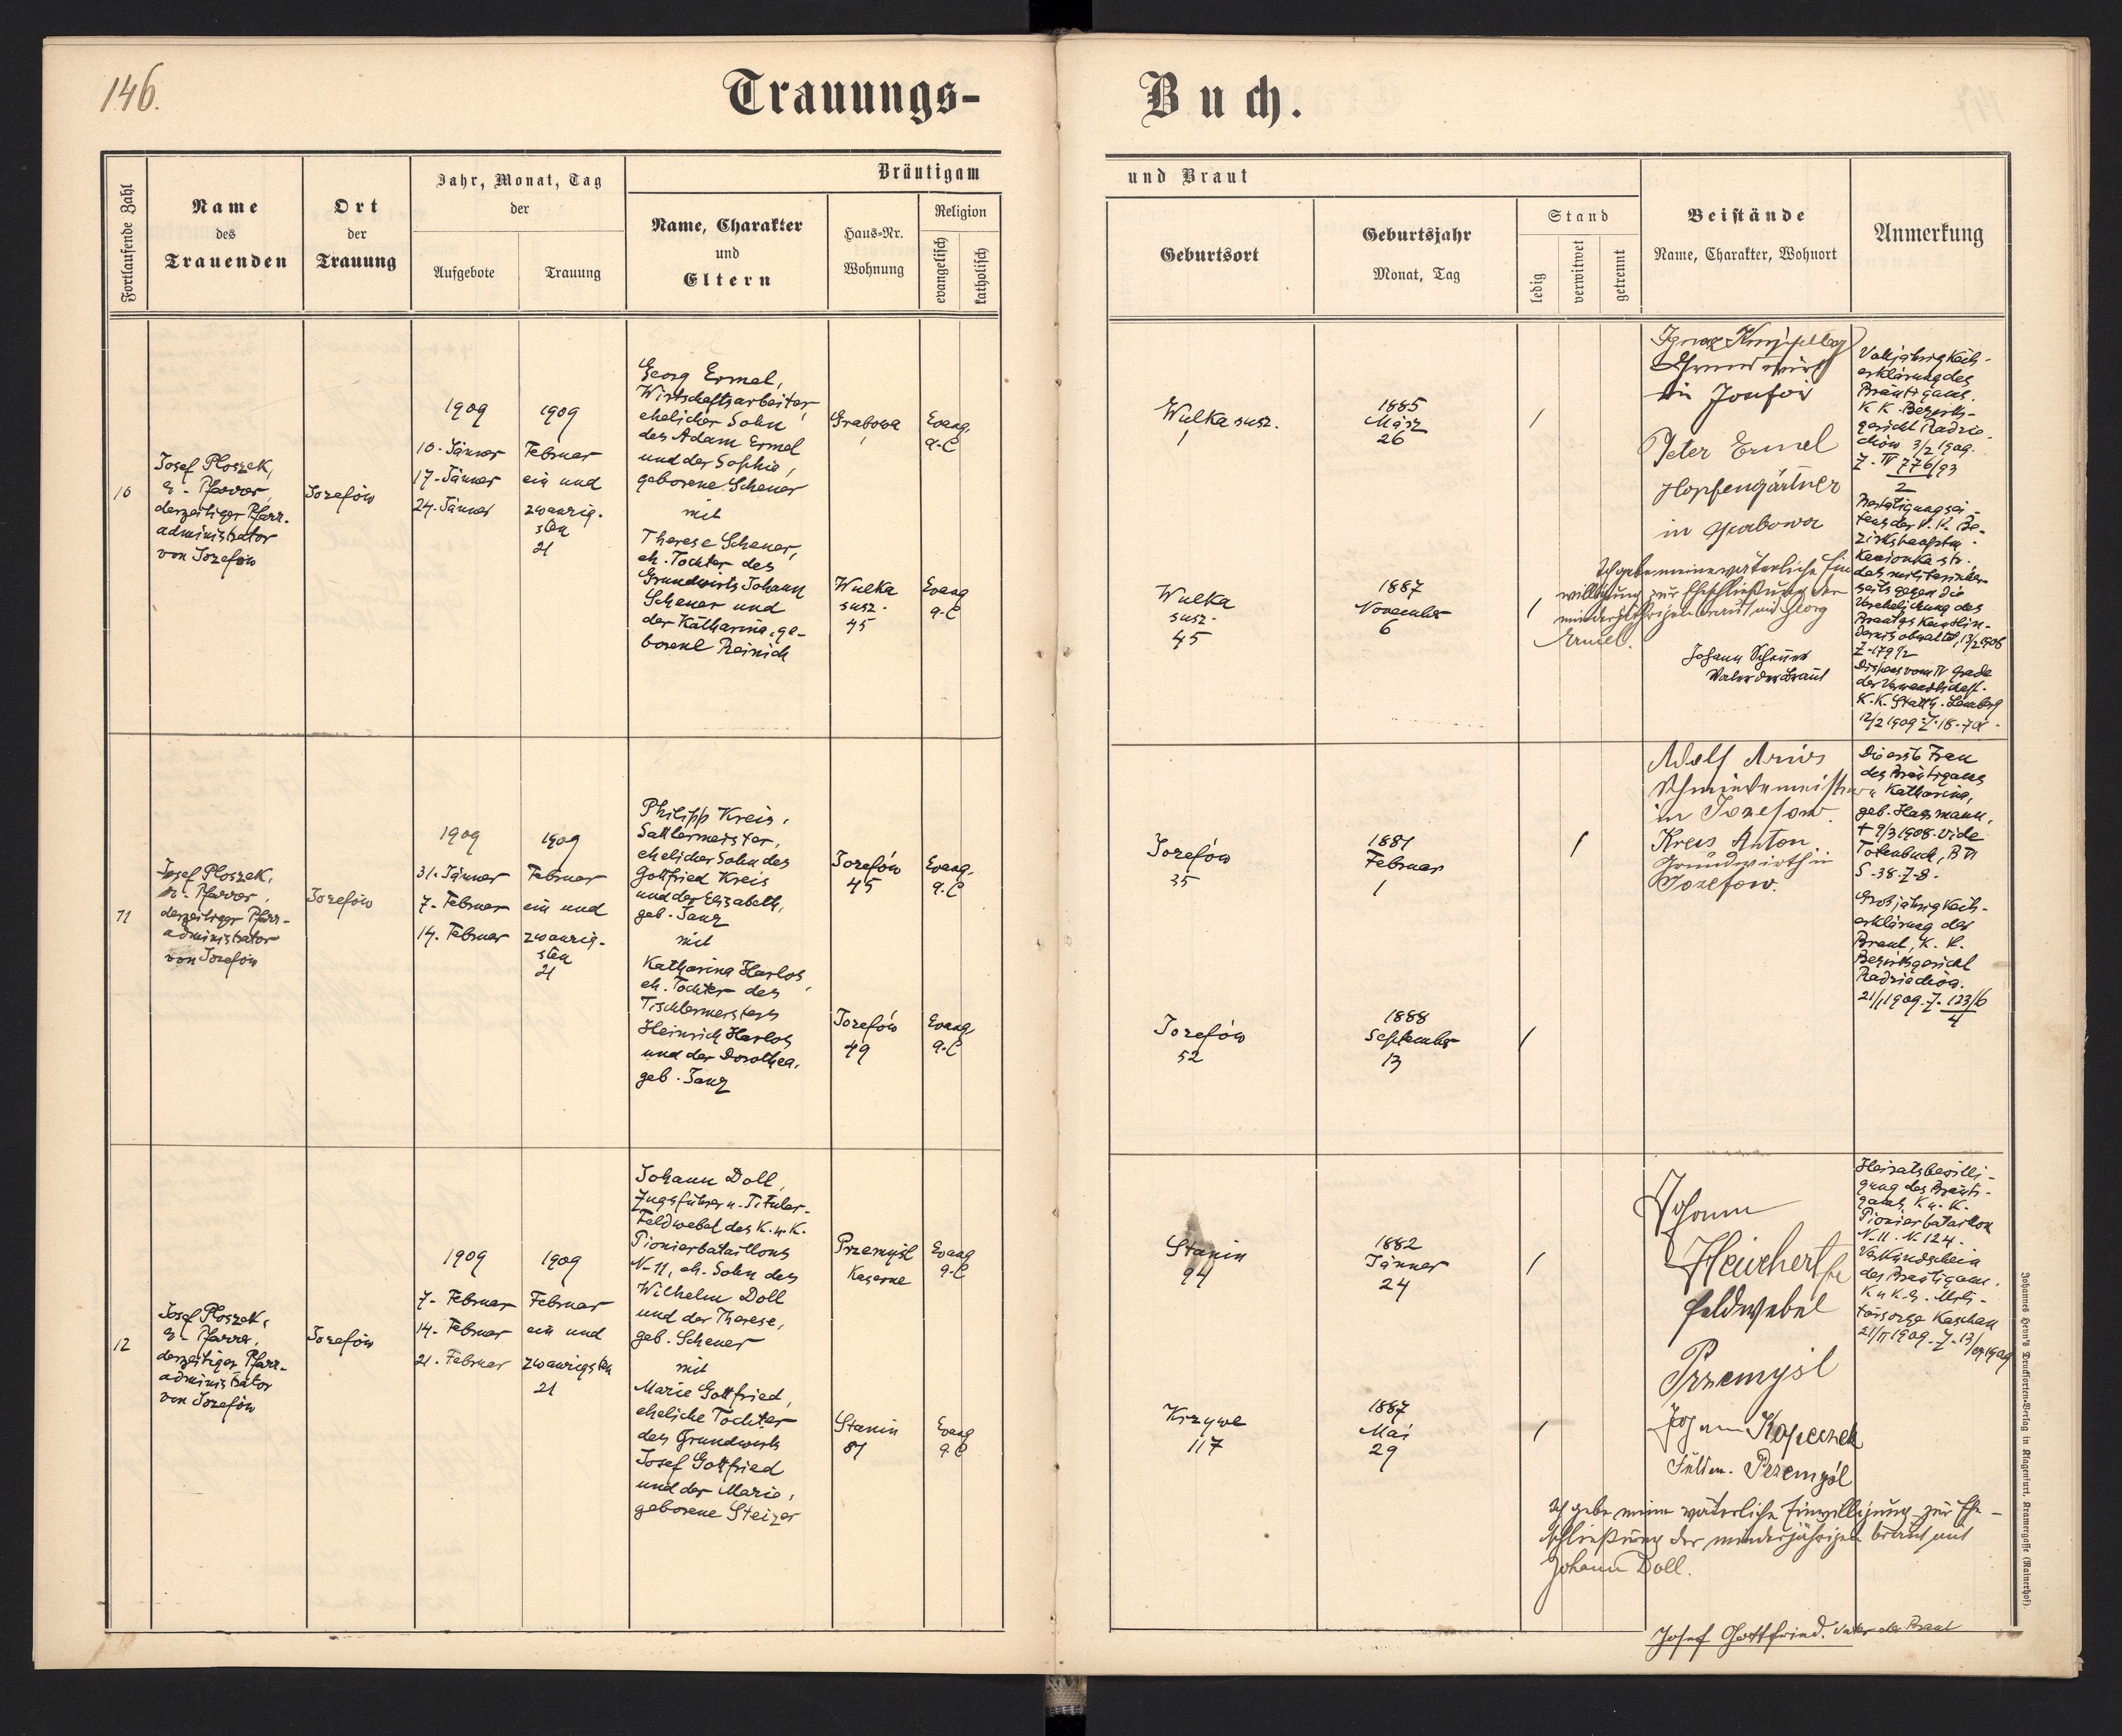 146.
Trauungs-
Buch.
Fortlaufende Zahl
Name
des
Trauenden
Ort
der
Trauung
Jahr, Monat, Tag
der
Aufgebote
Trauung
Bräutigam
Name, Charakter
und
Eltern
Haus-Nr.
Wohnung
Religion
evangelisch
katholisch
und Braut
Geburtsort
Geburtsjahr
Monat, Tag
Stand
ledig
verwitwet
getrennt
Beistände
Name, Charakter, Wohnort
Anmerkung
10
Josef Ploszek,
e. Pfarrer,
derzeitiger Pfarr-
administrator
von Josefów
Josefów
1909
10. Jänner
17. Jänner
24. Jänner
1909
Februar
ein und
zwanzig-
sten
21
Georg Ermel,
Wirtschaftsarbeiter,
ehelicher Sohn
des Adam Ermel
und der Sophie,
geborene Scheuer
mit
Therese Scheuer,
eh. Tochter des
Grundwirts Johann
Scheuer und
der Katharina, ge-
borene Reinich
Grabowa
Evang.
A.C
Wulka
susz.
45
Evang
A.C
Wulka susz.
1885
März
26
/
Wulka
susz.
45
1887
November
6
/
Ignaz
Grundwirth
in
Peter Ermel
Hopfengärtner
in Grabowa
Ich gebe meine väterliche Ein
willigung zur Eheschließung der
minderjährigen Braut mit Georg
Ermel.
Johann Scheuer
Vater der Braut
Volljährigkeits-
erklärung des
Bräutigams.
K K Bezirks-
gericht Radzie-
chów 3/2 1909.
Z. IV 776/93
2
Bestätigung sei-
tens der k. k. Be-
zirkshauptm.
Kamionka str.
das militärischer-
seits gegen die
Verehelichung des
Bräutigs kein Hin-
dernis obwaltet, 13/2 1908
Z. 179 1/2
Dispens vom IV Grade
der Verwandtschaft.
K. K. Statth. Lemberg
12/2 1909 Z.
11
Josef Ploszek,
e. Pfarrer,
derzeitiger Pfarr-
administrator
von Josefów
Josefów
1909
31. Jänner
7. Februar
14. Februar
1909
Februar
ein und
zwanzig-
sten
21
Philipp Kreis,
Sattlermeister,
ehelicher Sohn des
Gottfried Kreis
und der Elisabeth,
geb. Janz
mit
Katharina Harlos,
eh. Tochter des
Tischlermeisters
Heinrich Harlos
und der Dorothea,
geb. Janz
Josefów
45
Evang.
A.C
Josefów
49
Evang
A.C
Josefów
35
1881
Februar
1
/
Josefów
52
1888
September
13
/
Adolf
Schmiedemeister
in Josefow.
Kreis Anton
Grundwirth in
Josefow.
Die erste Frau
des Bräutigams
Katharina,
geb. Hassmann,
+ 9/3 1908. vide
Totenbuch, B VI
S. 38. Z. 8.
Grosjährigkeits-
erklärung der
Braut, K. K.
Bezirksgericht
Radziechów.
21/1 1909. Z. 123/6
4
12
Josef Ploszek,
e. Pfarrer,
derzeitiger Pfarr-
administrator
von Josefów
Josefów
1909
7. Februar
14. Februar
21. Februar
1909
Februar
ein und
zwanzigsten
21
Johann Doll,
Zugsführer u. Titular-
Feldwebel des K. u. K.
Pionierbataillons
N. 11, eh. Sohn des
Wilhelm Doll
und der Therese,
geb. Scheuer
mit
Marie Gottfried,
eheliche Tochter
des Grundwirts
Josef Gottfried
und der Marie,
geborene Steizer
Przemyśl
Kaserne
Evang
A.C
Stanin
81
Evang
A.C
Stanin
94
1882
Jänner
24
/
Krzywe
117
1887
Mai
29
/
Johann
Feldwebel
Przemysl
Johann Kopeczek
Przemyśl
Ich gebe meine väterliche Einwilligung zur Ehe-
schließung der minderjährigen Braut mit
Johann Doll.
Josef Gottfried. Vater der Braut
Heiratsbewilli-
gung des Bräuti-
gams, K. u. K.
Pionierbataillon
N. 11. N. 124.
Verkündschein
des Bräutigams.
K u K. e. Mili-
tärsorge Kaschau
21/II 1909. Z. 13/
Johannes Heyn's Drucksorten-Verlag in Klagenfurt, Kramergasse (Rainerhof).